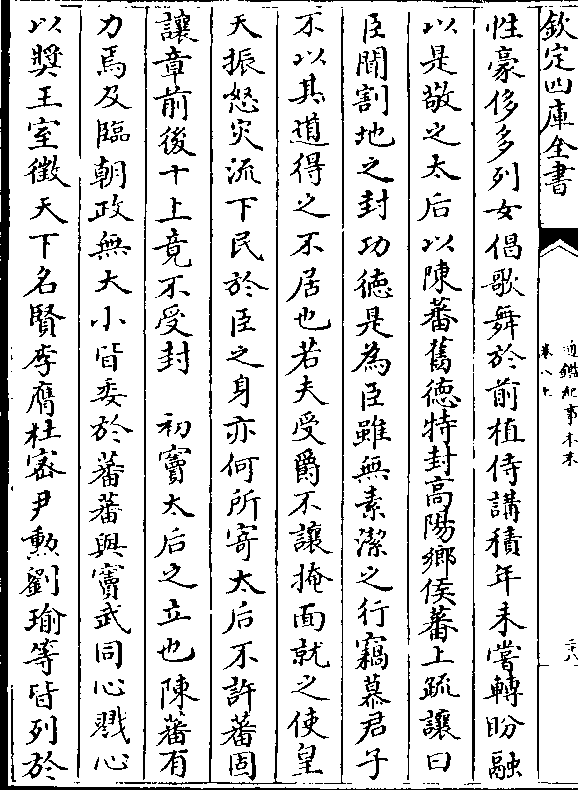 欽定四庫全書
通鑑紀事本末
卷八上
二八
性豪侈多列女倡歌舞於前植侍講積年未嘗轉盼融
以是敬之太后以陳蕃舊德特封高陽鄉侯蕃上疏讓曰
臣聞割地之封功德是為臣雖無素潔之行竊慕君子
不以其道得之不居也若夫受爵不讓掩面就之使皇
天振怒災流下民於臣之身亦何所寄太后不許蕃固
讓章前後十上竟不受封　初竇太后之立也陳蕃有
力焉及臨朝政無大小皆委於蕃蕃與竇武同心戮心
以奬王室徵天下名賢李膺杜密尹勲劉瑜等皆列於